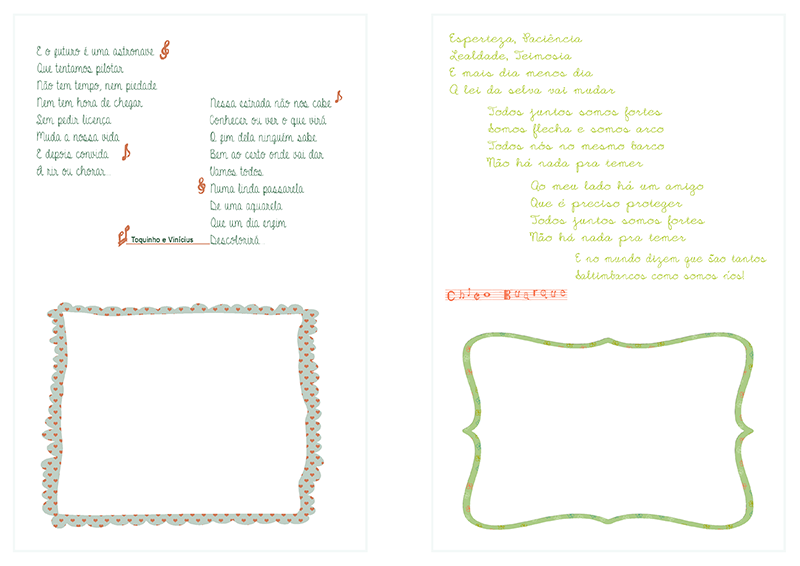 E o futuro é uma astronave
Que tentamos pilotar
Não tem tempo, nem piedade
Nem tem hora de chegar
Sem pedir licença
Muda a nossa vida
E depois convida
A rir ou chorar...
Nessa estrada não nos cabe
Conhecer ou ver o que virá
O fim dela ninguém sabe
Bem ao certo onde vai dar
Vamos todos
Numa linda passarela
De uma aquarela
Que um dia enfim
Descolorirá...
Toquinho e Vinícius
Esperteza, Paciência
Lealdade, Teimosia
E mais dia menos dia
A lei da selva vai mudar
Todos juntos somos fortes
Somos flecha e somos arco
Todos nós no mesmo barco
Não há nada pra temer
Ao meu lado há um amigo
Que é preciso proteger
Todos juntos somos fortes
Não há nada pra temer
E no mundo dizem que são tantos
Saltimbancos como somos nós!
Chico Buarque